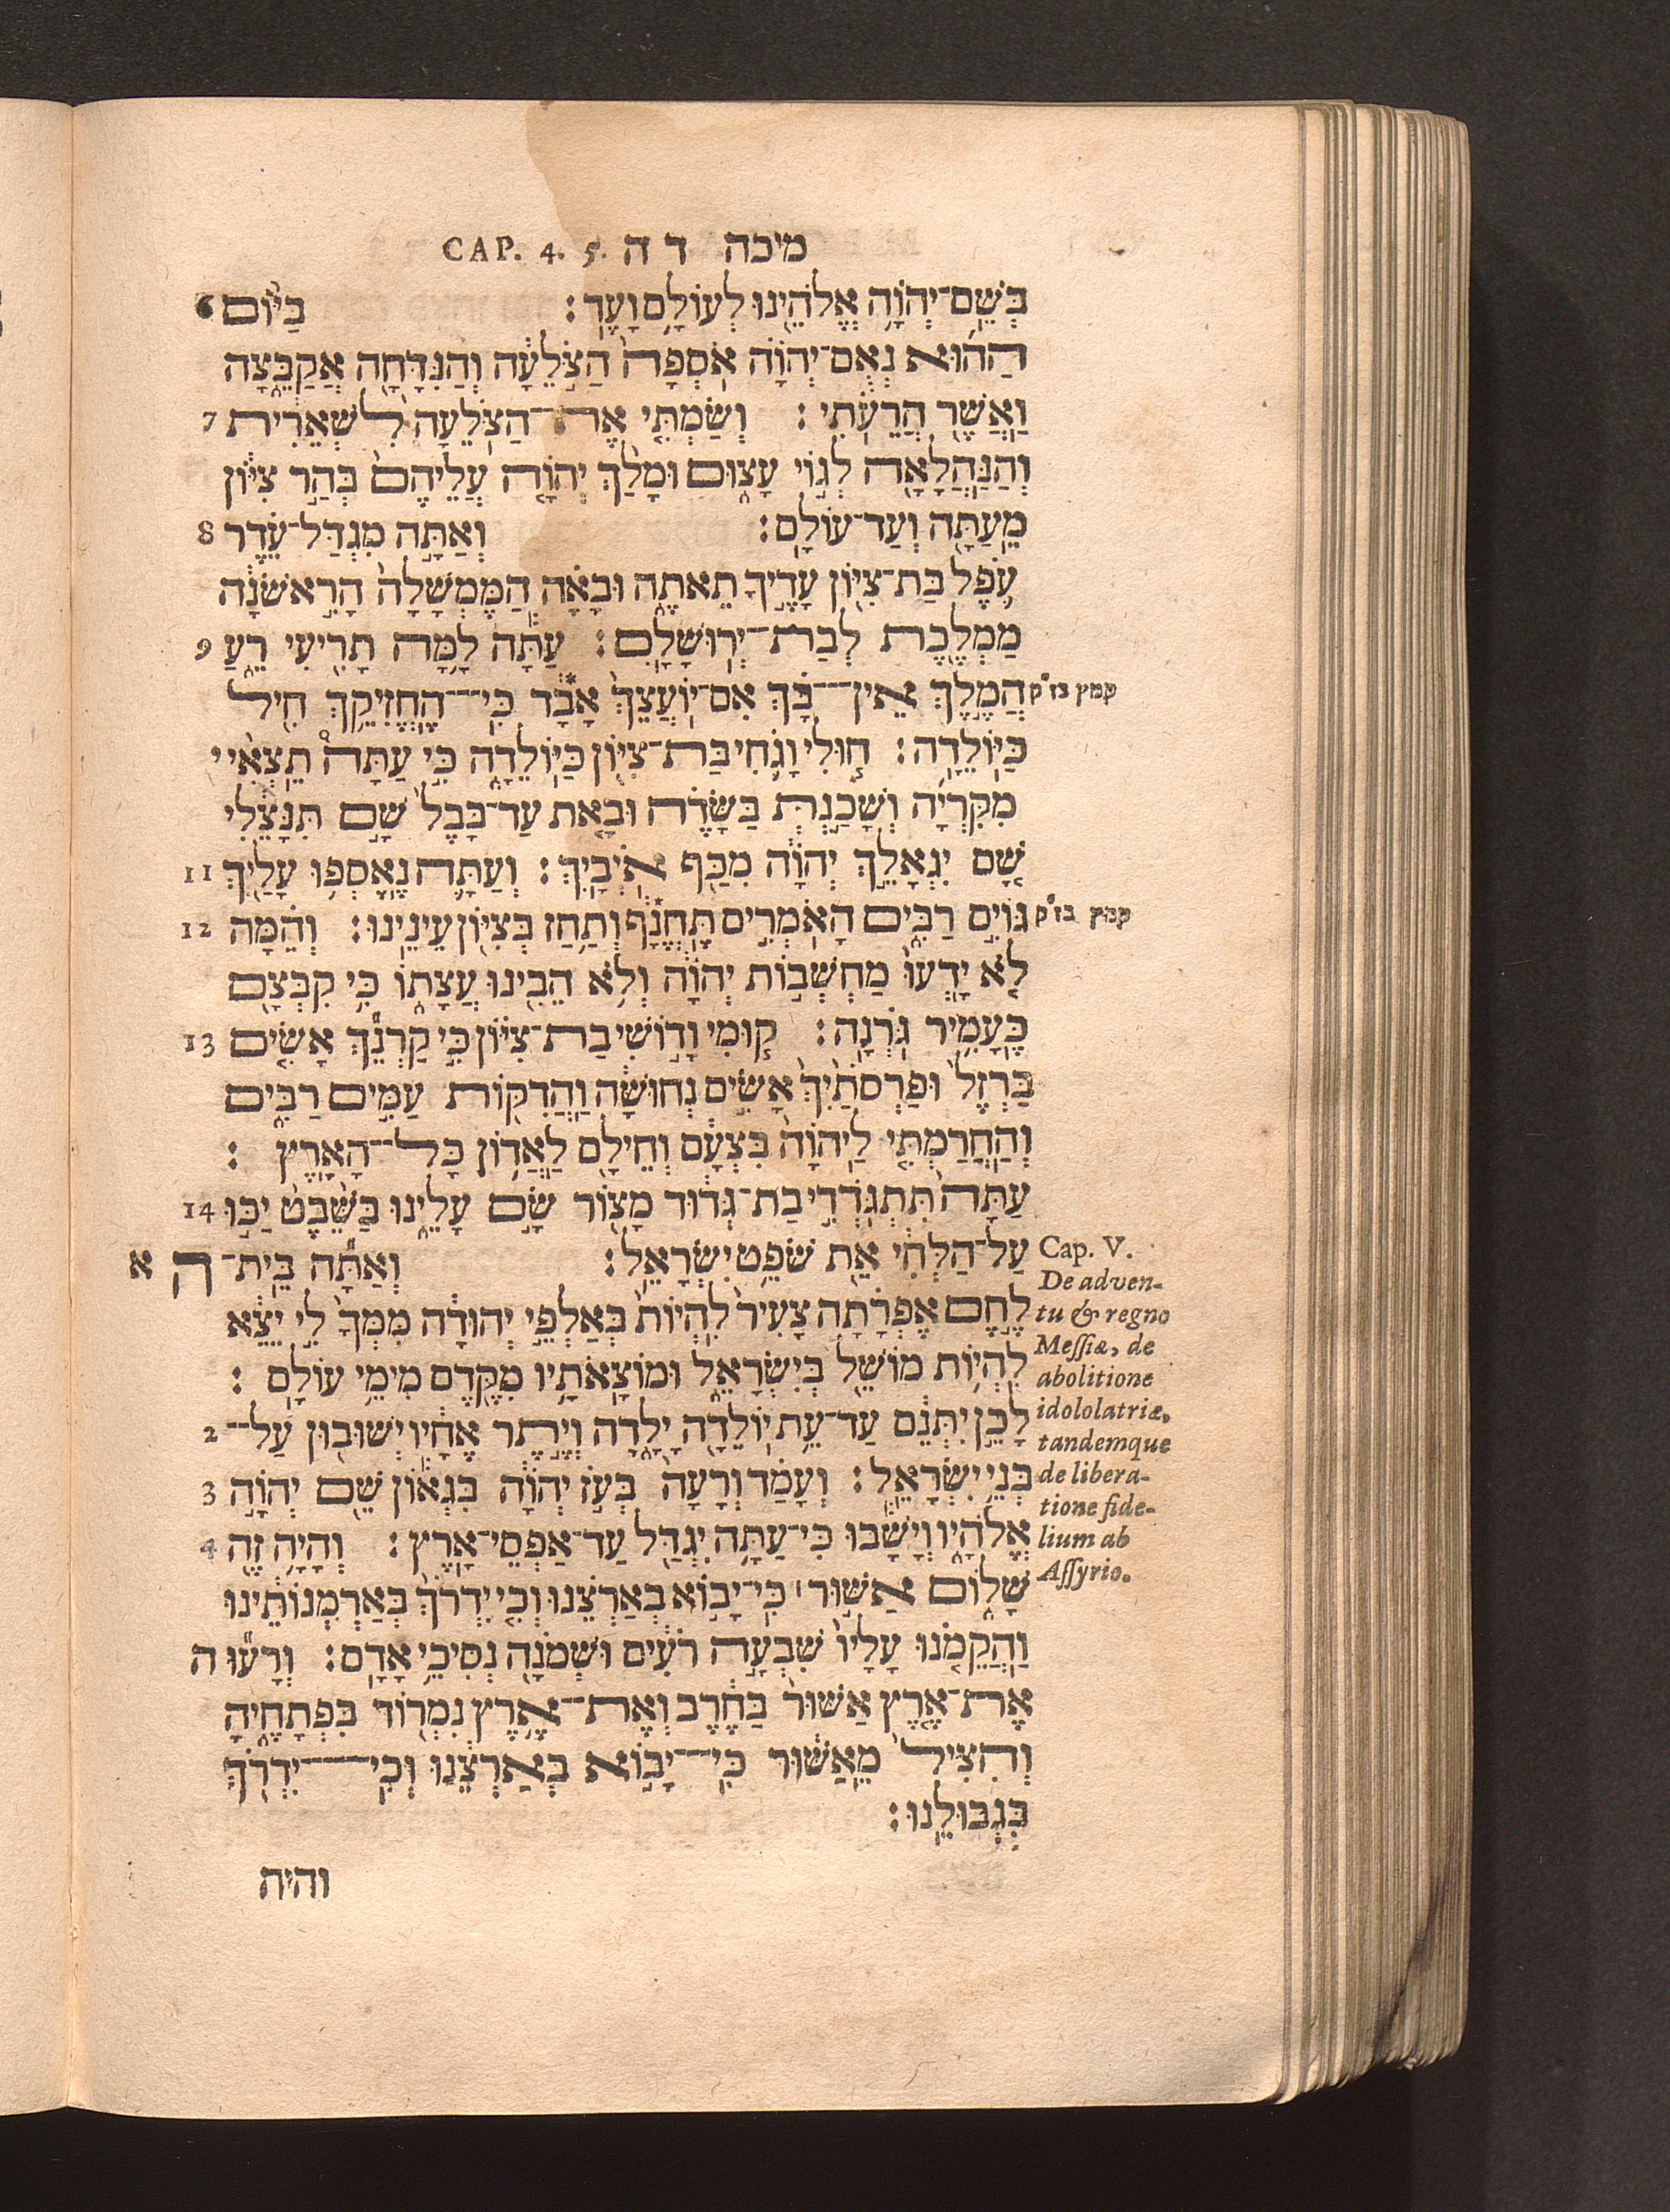 מיכה ד ה CAP. 4. 5.
בְּשֵׁם־יְהוָה אֱלֹהֵינוּ לְעוֹלָם וָעֶד׃ בַּיּוֹם 6
הַהוּא נְאֻם־יְהוָה אֹסְפָה הַצֹּלֵעָה וְהַנִּדָּחָה אֲקַבֵּצָה
וַאֲשֶׁר הֲרֵעֹתִי׃ וְשַׂמְתִּי אֶת־הַצֹּלֵעָה לִשְׁאֵרִית 7
וְהַנַּהֲלָאָה לְגוֹי עָצוּם וּמָלַךְ יְהוָה עֲלֵיהֶם בְּהַר צִיּוֹן
מֵעַתָּה וְעַד־עוֹלָם׃ וְאַתָּה מִגְדַּל־עֵדֶר 8
עֹפֶל בַּת־צִיּוֹן עָדֶיךָ תֵּאתֶה וּבָאָה הַמֶּמְשָׁלָה הָרִאשֹׁנָה
מַמְלֶכֶת לְבַת־יְרוּשָׁלִָם׃ עַתָּה לָמָּה תָרִיעִי רֵעַ 9
הֲמֶלֶךְ אֵין־בָּךְ אִם־יוֹעֲצֵךְ אָבָד כִּי־הֶחֱזִיקֵךְ חִיל
קמץ בז״ק
כַּיּוֹלֵדָה׃ חוּלִי וָגֹחִי בַּת־צִיּוֹן כַּיּוֹלֵדָה כִּי עַתָּה תֵצְאִי י
מִקִּרְיָה וְשָׁכַנְתְּ בַּשָּׂדֶה וּבָאת עַד־בָּבֶל שָׁם תִּנָּצֵלִי
שָׁם יִגְאָלֵךְ יְהוָה מִכַּף אֹיְבָיִךְ׃ וְעַתָּה נֶאֶסְפוּ עָלַיִךְ 11
גּוֹיִם רַבִּים הָאֹמְרִים תֶּחֱנָף וְתַחַז בְּצִיּוֹן עֵינֵינוּ׃ וְהֵמָּה 12
קמץ בז״ק
לֹא יָדְעוּ מַחְשְׁבוֹת יְהוָה וְלֹא הֵבִינוּ עֲצָתוֹ כִּי קִבְּצָם
כֶּעָמִיר גֹּרְנָה׃ קוּמִי וָדוֹשִׁי בַת־צִיּוֹן כִּי קַרְנֵךְ אָשִׂים 13
בַּרְזֶל וּפַרְסֹתַיִךְ אָשִׂים נְחוּשָׁה וַהֲדִקּוֹת עַמִּים רַבִּים
וְהַחֲרַמְתִּי לַיהוָה בִּצְעָם וְחֵילָם לַאֲדוֹן כָּל־הָאָרֶץ׃
עַתָּה תִּתְגֹּדְדִי בַת־גְּדוּד מָצוֹר שָׂם עָלֵינוּ בַּשֵּׁבֶט יַכּוּ 14
עַל־הַלְּחִי אֵת שֹׁפֵט יִשְׂרָאֵל׃ וְאַתָּה בֵּית־ ה א
לֶחֶם אֶפְרָתָה צָעִיר לִהְיוֹת בְּאַלְפֵי יְהוּדָה מִמְּךָ לִי יֵצֵא
לִהְיוֹת מוֹשֵׁל בְּיִשְׂרָאֵל וּמוֹצָאֹתָיו מִקֶּדֶם מִימֵי עוֹלָם׃
לָכֵן יִתְּנֵם עַד־עֵת יוֹלֵדָה יָלָדָה וְיֶתֶר אֶחָיו יְשׁוּבוּן עַל־ 2
בְּנֵי יִשְׂרָאֵל׃ וְעָמַד וְרָעָה בְּעֹז יְהוָה בִּגְאוֹן שֵׁם יְהוָה 3
אֱלֹהָיו וְיָשָׁבוּ כִּי־עַתָּה יִגְדַּל עַד־אַפְסֵי־אָרֶץ׃ וְהָיָה זֶה 4
שָׁלוֹם אַשּׁוּר׀ כִּי־יָבוֹא בְאַרְצֵנוּ וְכִי יִדְרֹךְ בְּאַרְמְנוֹתֵינוּ
וַהֲקֵמֹנוּ עָלָיו שִׁבְעָה רֹעִים וּשְׁמֹנָה נְסִיכֵי אָדָם׃ וְרָעוּ ה
אֶת־אֶרֶץ אַשּׁוּר בַּחֶרֶב וְאֶת־אֶרֶץ נִמְרוֹד בִּפְתָחֶיהָ
וְהִצִּיל מֵאַשּׁוּר כִּי־יָבוֹא בְאַרְצֵנוּ וְכִי־יִדְרֹךְ
בִּגְבוּלֵנוּ׃
והיה
Cap. V.
De adven-
tu & regno
Meſſiæ, de
abolitione
idololatriæ,
tandemque
de libera-
tione fide-
lium ab
Aſſyrio.